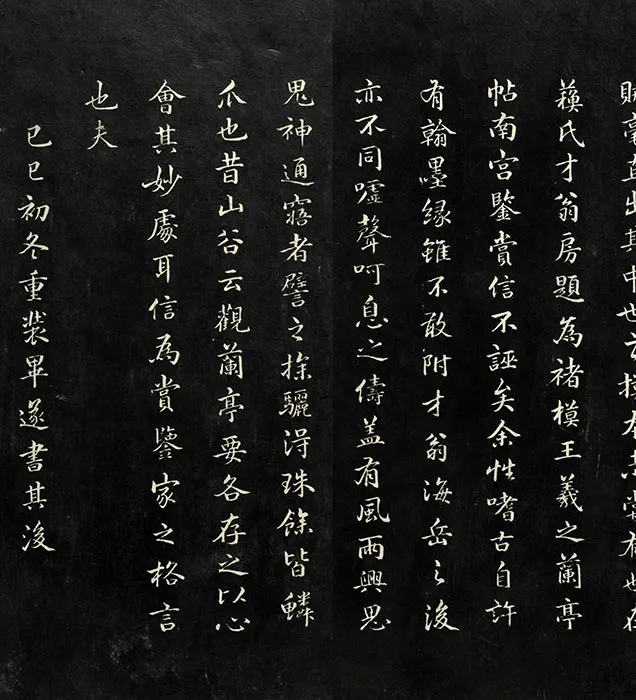 直出其中
蘓氏才翁房題為褚模王羲之蘭亭
帖南宮鑒賞信不誣矣余性嗜古自許
有翰墨緣雖不敢附才翁海岳之後
亦不同噓聲呵息之儔蓋有風雨興思
鬼神通寤者譬之探驪得珠餘皆鱗
爪也昔山谷云觀蘭亭要各存之以心
會其妙處耳信為賞鑒家之格言
也夫
己巳初冬重裝畢遂書其後